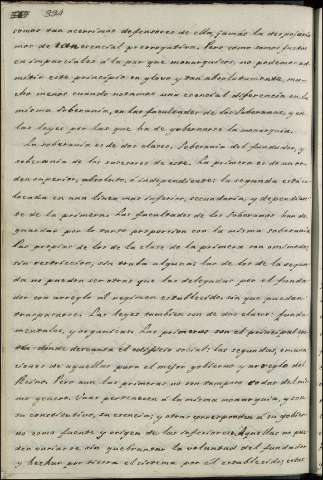 394
somos tan acerrimos defensores de ella, jamás la despojaría-
mos de tan esencial prerrogativa. Pero como somos justos
é imparciales á la par que monarquicos, no podemos ad-
mitir este principio en globo y tan absolutamente, mu-
cho menos cuando notamos una esencial diferencia en la
misma soberanía, en las facultades de los Soberanos, y en
las leyes por las que ha de gobernarse la monarquia.
La soberanía es de dos clases. Soberanía del fundador, y
soberanía de los sucesores de este. La primera es de un or-
den superior, absoluta, é independiente: la segunda está co-
locada en una linea mas inferior, secundaria, y dependien-
te de la primera. Las facultades de los Soberanos han de
guardar por lo tanto proporcion con la misma soberanía.
Las propias de los de la clase de la primera son omnimodas,
sin restriccion, sin traba alguna: las de los de la segun-
da no pueden ser otras que las delegadas por el funda-
dor con arreglo al regimen establecido, sin que puedan
traspasarse. Las leyes tambien son de dos clases: funda-
mentales, y organicas. Las primeras son el principal
donde descansa el edificio social: las segundas, emana-
ciones de aquellas para el mejor gobierno y arreglo del
Reino. Pero aun las primeras no son tampoco todas del mis-
mo genero. Unas pertenecen á la misma monarquia, y son
su constitutivo, su esencia; y otras corresponden á su gobier-
no como fuente y origen de las inferiores. Aquellas no pue-
den variarse sin quebrantar la voluntad del fundador
y echar por tierra el sistema por él establecido; estas